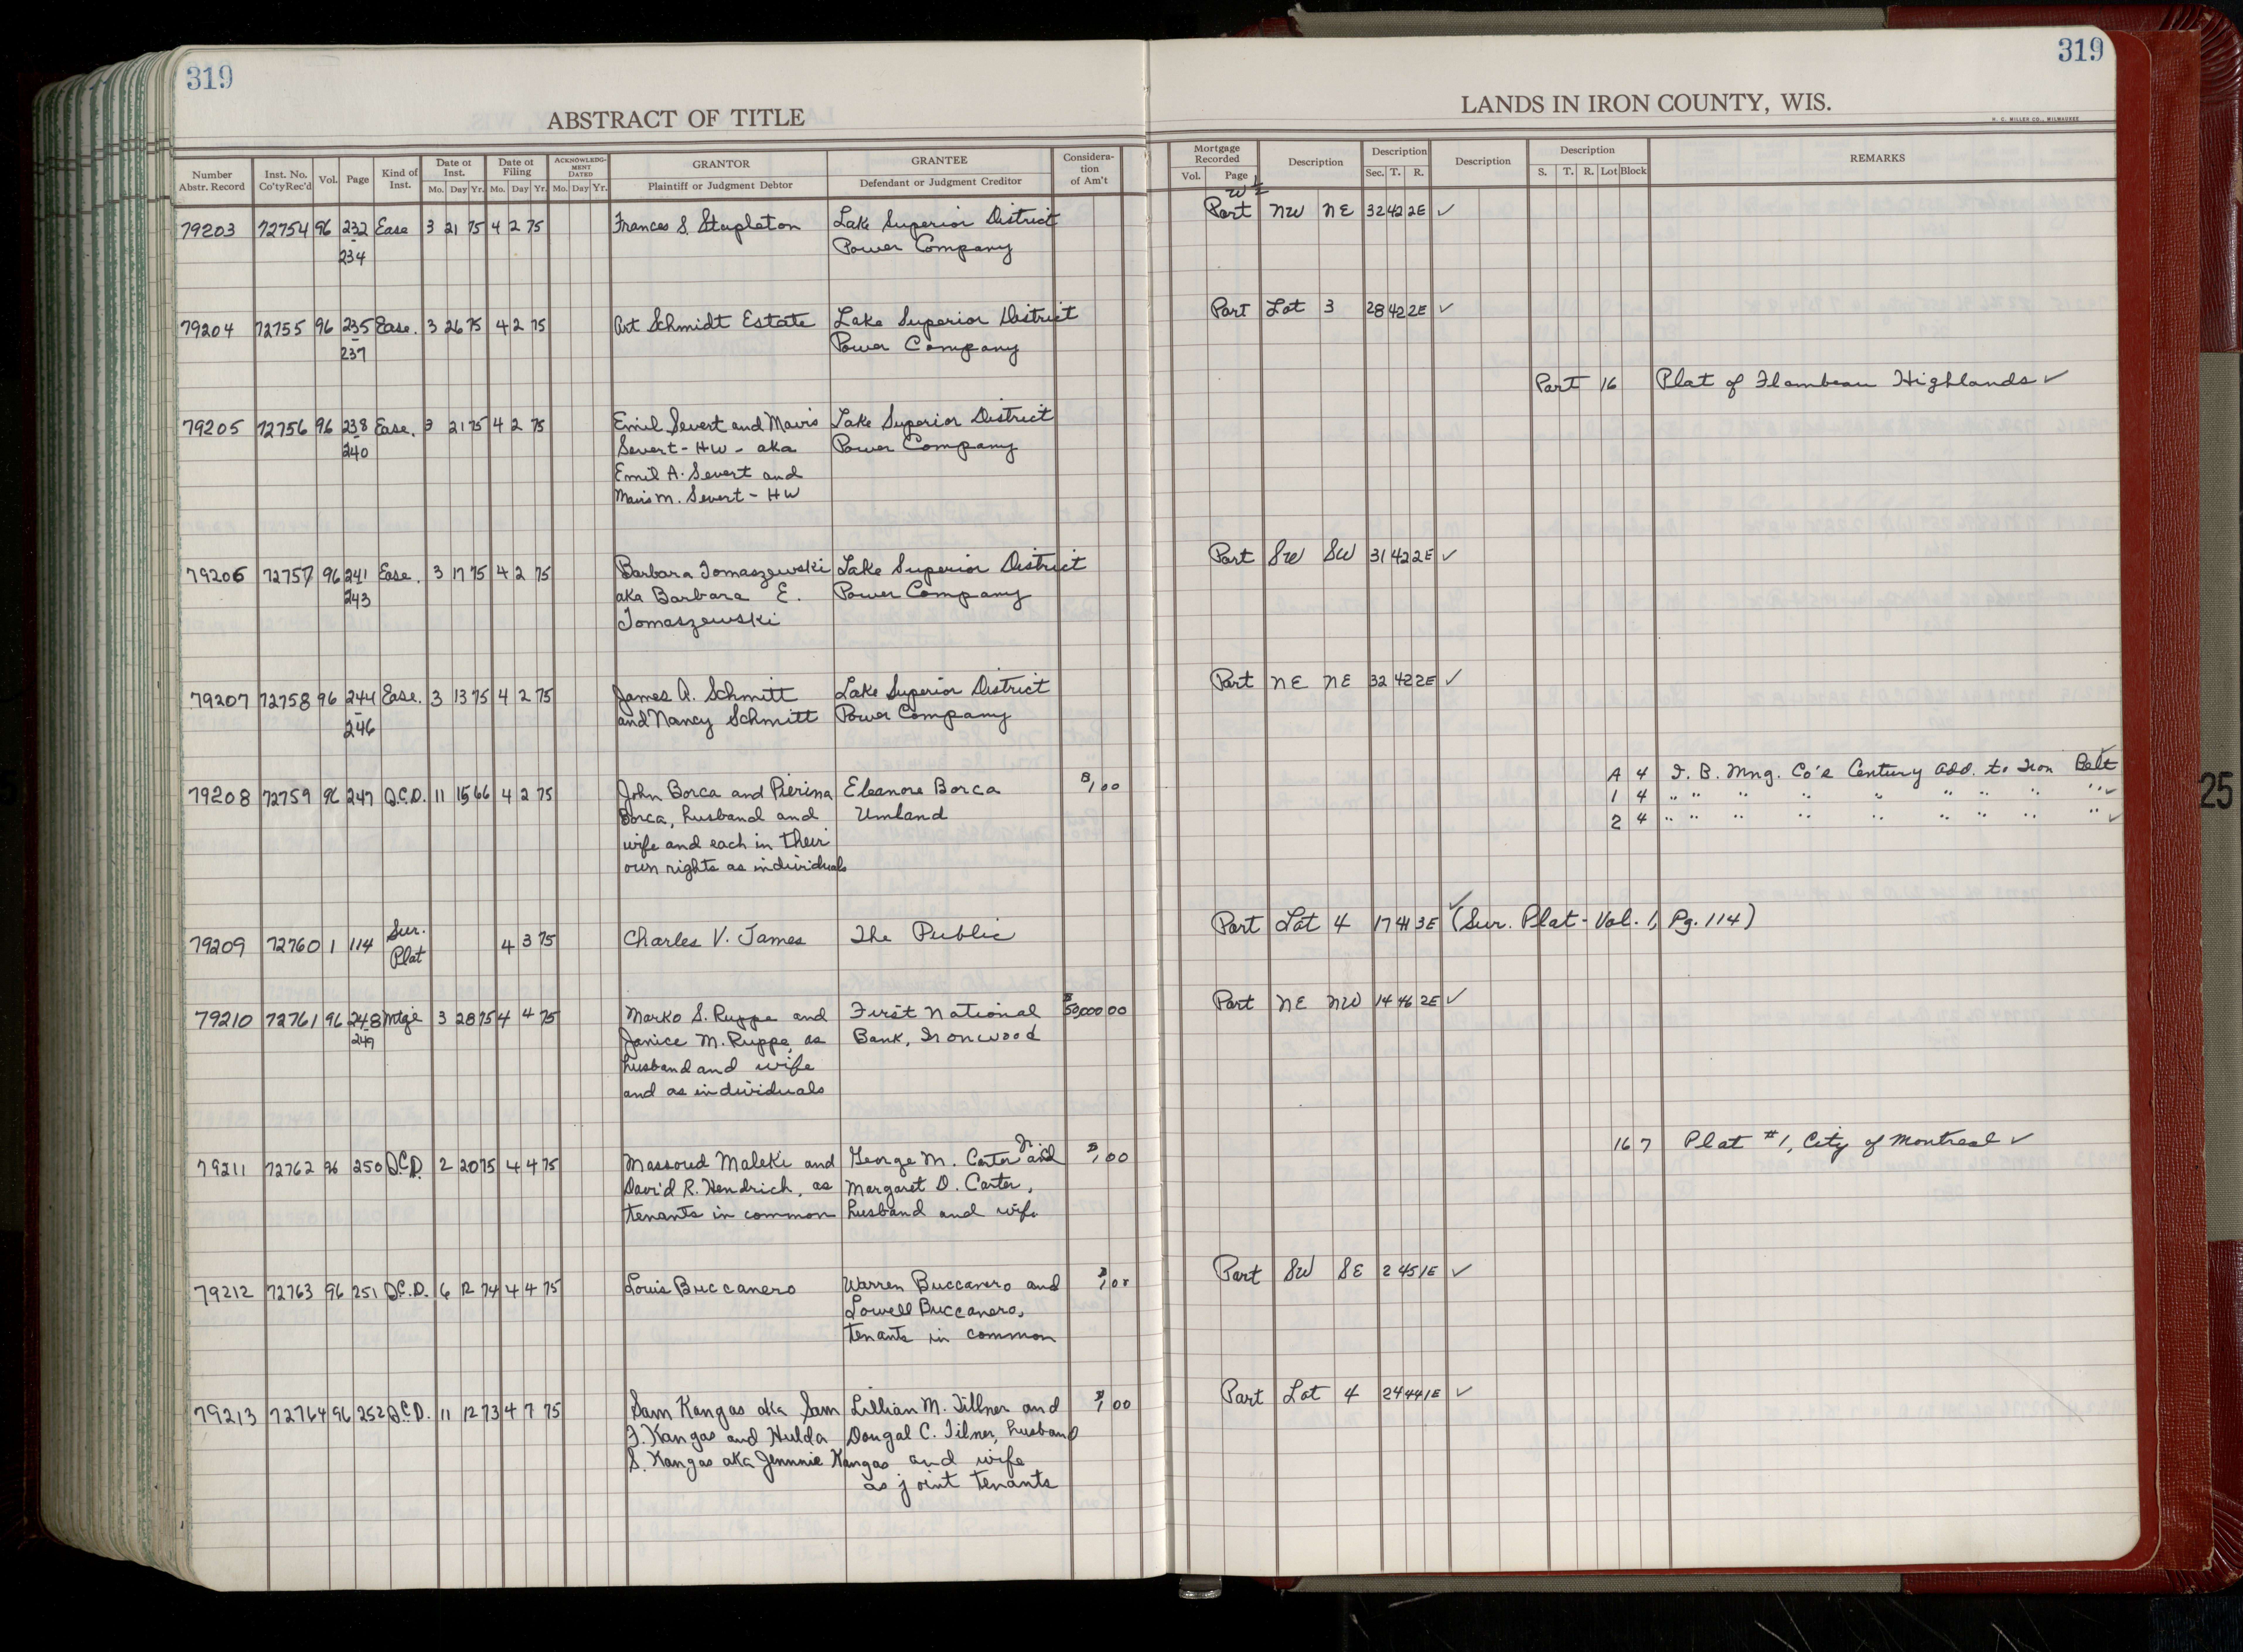 319
319
ABSTRACT OF TITLE
LANDS IN IRON COUNTY, WIS.
H. C. MILLER CO., MILWAUKEE
Number Abstr. Record | Inst. No. Co'ty Rec'd | Vol. | Page | Kind of Inst. | Date of Inst. Mo. Day Yr. | Date of Filing Mo. Day Yr. | ACKNOWLEDGMENT DATED Mo. Day Yr. | GRANTOR Plaintiff or Judgment Debtor | GRANTEE Defendant or Judgment Creditor | Consideration of Am't | Mortgage Recorded Vol. Page | Description | Description Sec. T. R. | Description | Description S. T. R. Lot Block | REMARKS
W½
79203 72754 96 232 Ease 3 21 75 4 2 75 Frances S. Stapleton Lake Superior District Part NW NE 32 42 2E ✓
234 Power Company
79204 72755 96 235 Ease. 3 26 75 4 2 75 Art Schmidt Estate Lake Superior District Part Lot 3 28 42 2E ✓
237 Power Company
Part 16 Plat of Flambeau Highlands ✓
79205 72756 96 238 Ease. 3 21 75 4 2 75 Emil Severt and Mavis Lake Superior District
240 Severt - HW - aka Power Company
Emil A. Severt and
Mavis M. Severt - HW
79206 72757 96 241 Ease. 3 17 75 4 2 75 Barbara Tomaszewski Lake Superior District Part SW SW 31 42 2E ✓
243 aka Barbara E. Power Company
Tomaszewski
79207 72758 96 244 Ease. 3 13 75 4 2 75 James A. Schmitt Lake Superior District Part NE NE 32 42 2E ✓
246 and Nancy Schmitt Power Company
79208 72759 96 247 Q.C.D. 11 15 66 4 2 75 John Borca and Pierina Eleanore Borca $1,00 A 4 I. B. Mng. Co's Century Add. to Iron Belt ✓
Borca, husband and Umland 1 4 " " " " " " " " " ✓
wife and each in their 2 4 " " " " " " " " " ✓
own rights as individuals
79209 72760 1 114 Sur. Plat 4 3 75 Charles V. James The Public Part Lot 4 17 41 3E ✓ (Sur. Plat - Vol. 1, Pg. 114)
79210 72761 96 248 Mtge 3 28 75 4 4 75 Marko S. Ruppe and First National $50,000 00 Part NE NW 14 46 2E ✓
249 Janice M. Ruppe, as Bank, Ironwood
husband and wife
and as individuals
79211 72762 96 250 Q.C.D. 2 20 75 4 4 75 Massoud Maleki and George M. Carter Jr. and $1,00 16 7 Plat #1, City of Montreal ✓
David R. Hendrich, as Margaret D. Carter,
tenants in common husband and wife
79212 72763 96 251 Q.C.D. 6 12 74 4 4 75 Louis Buccanero Warren Buccanero and $1,00 Part SW SE 2 45 1E ✓
Lowell Buccanero,
tenants in common
79213 72764 96 252 Q.C.D. 11 12 73 4 7 75 Sam Kangas aka Sam Lillian M. Tillner and $1 00 Part Lot 4 24 44 1E ✓
J. Kangas and Hulda Dougal C. Tilner, husband
S. Kangas aka Jennnie Kangas and wife
as joint tenants
25